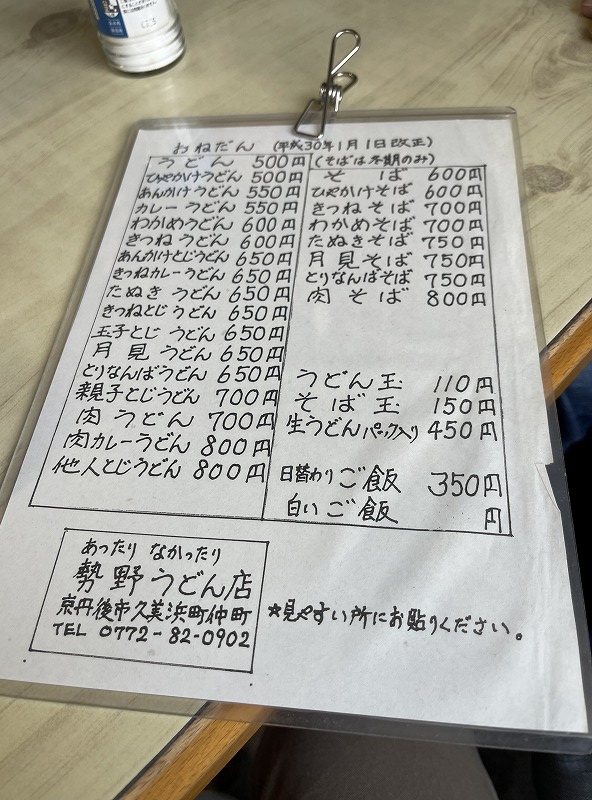 おねだん (平成30年1月1日改正)
うどん 500円
ひやかけうどん 500円
あんかけうどん 550円
カレーうどん 550円
わかめうどん 600円
きつねうどん 600円
あんかけとじうどん 650円
きつねカレーうどん 650円
たぬきうどん 650円
きつねとじうどん 650円
玉子とじうどん 650円
月見うどん 650円
とりなんばうどん 650円
親子とじうどん 700円
肉うどん 700円
肉カレーうどん 800円
他人とじうどん 800円
(そばは冬期のみ)
そば 600円
ひやかけそば 600円
きつねそば 700円
わかめそば 700円
たぬきそば 750円
月見そば 750円
とりなんばそば 750円
肉そば 800円
うどん玉 110円
そば玉 150円
生うどんパック入り 450円
日替わりご飯 350円
白いご飯 円
あったり なかったり
勢野うどん店
京丹後市久美浜町仲町
TEL 0772-82-0902
*見やすい所にお貼りください。